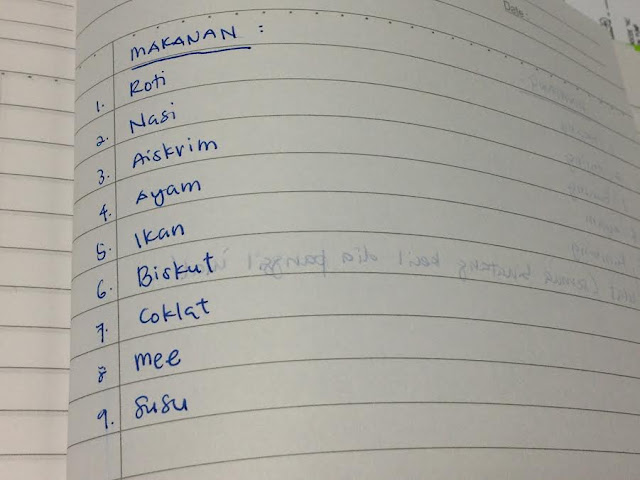 Date:
MAKANAN :
1. Roti
2. Nasi
3. Aiskrim
4. Ayam
5. Ikan
6. Biskut
7. Coklat
8 mee
9. susu